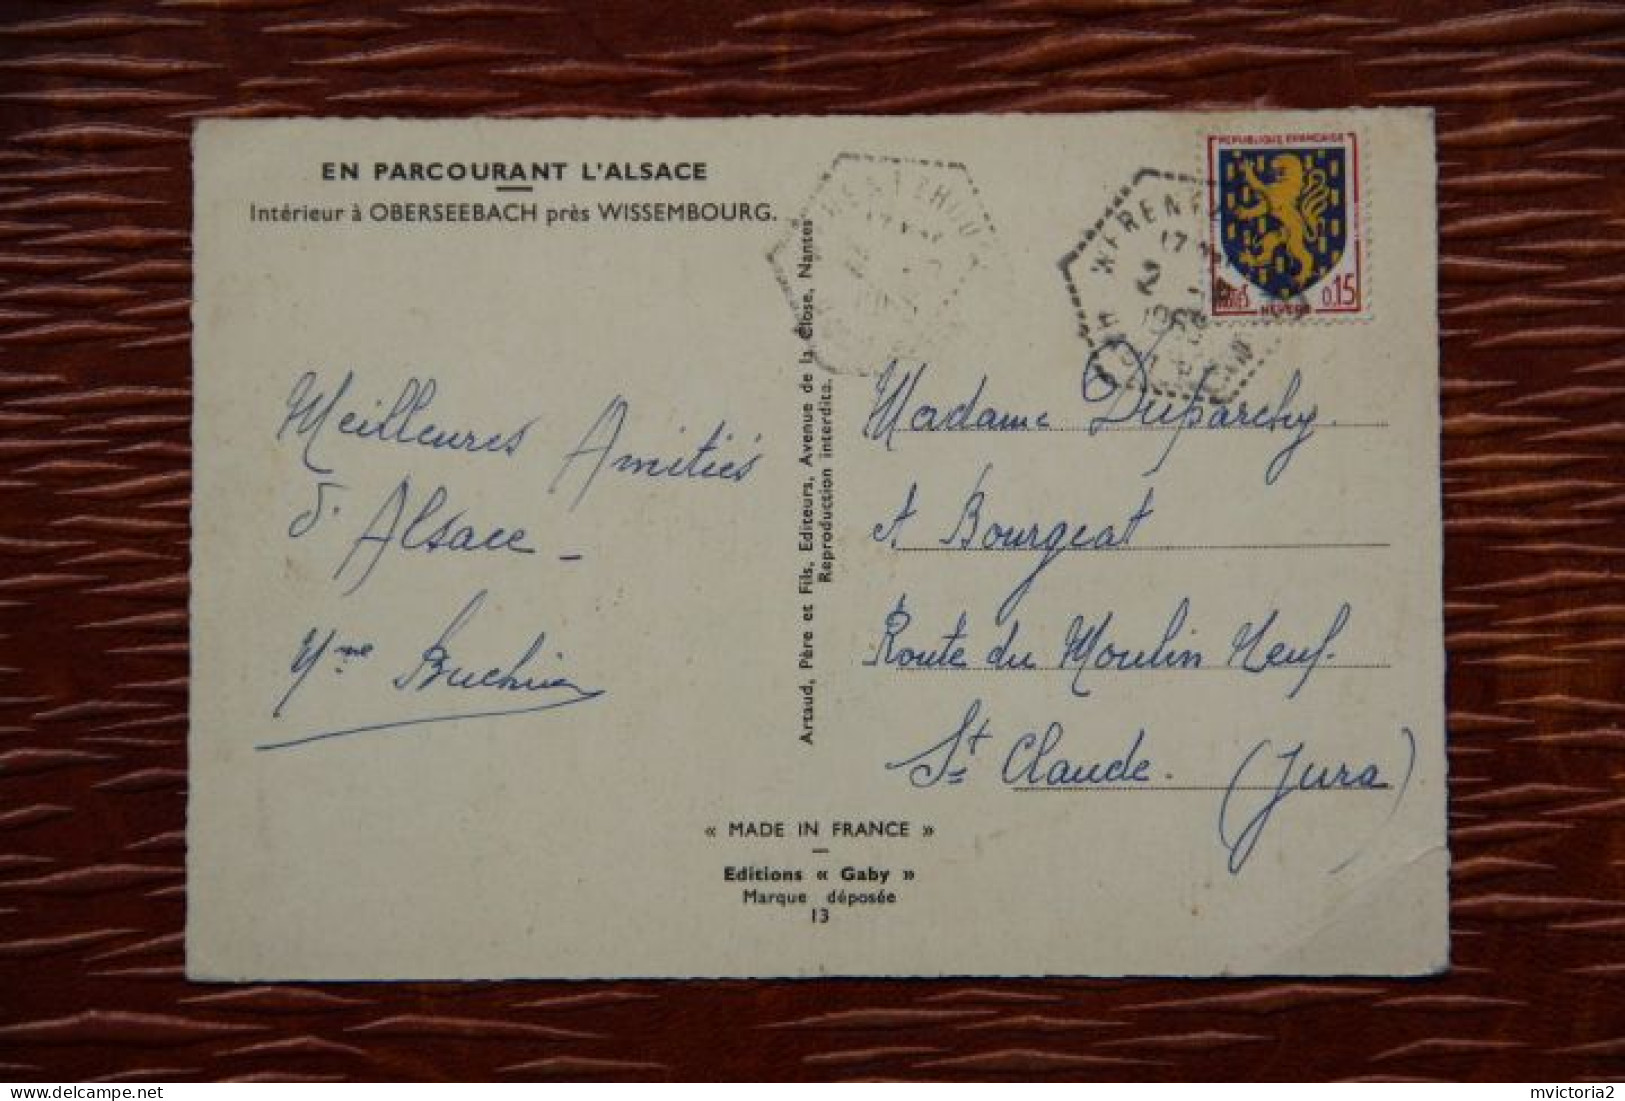 EN PARCOURANT L'ALSACE
Intérieur à OBERSEEBACH près WISSEMBOURG.
Meilleures Amitiés
d'Alsace –
Mme
Artaud, Père et Fils, Editeurs, Avenue de la Close, Nantes
Reproduction interdite.
« MADE IN FRANCE »
Editions « Gaby »
Marque déposée
13
REPUBLIQUE FRANÇAISE
0,15
NEVERS
17
2
Madame Duparchy
et Bourgeat
Route du Moulin Neuf.
St Claude. (Jura)
mvictoria2